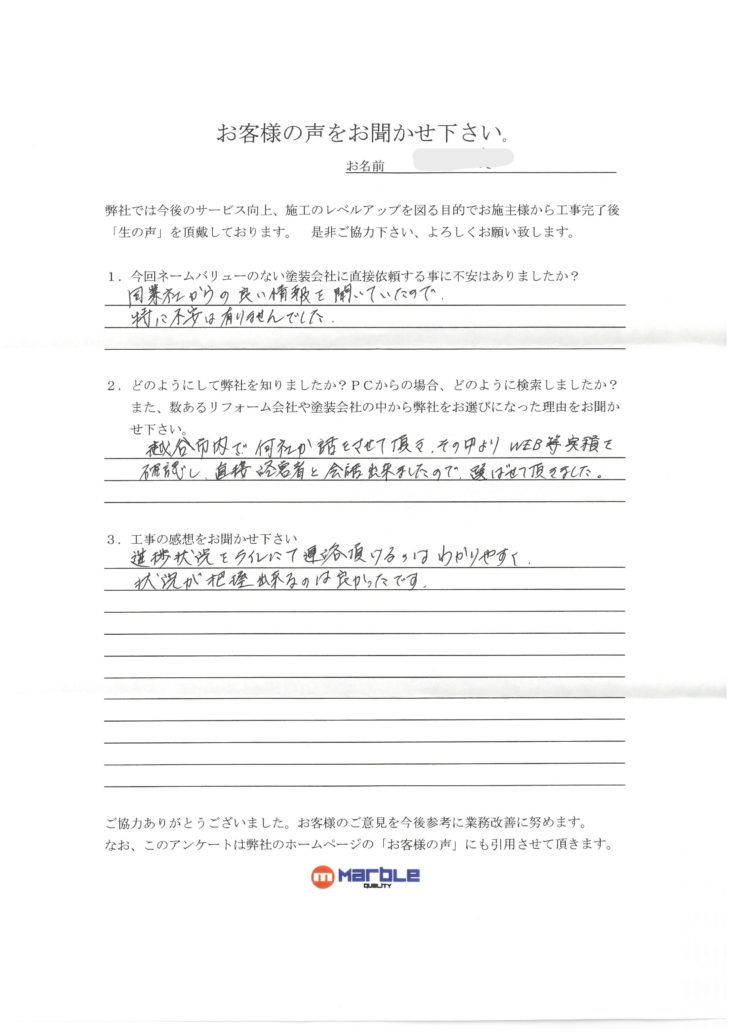 お客様の声をお聞かせ下さい。
お名前
弊社では今後のサービス向上、施工のレベルアップを図る目的でお施主様から工事完了後
「生の声」を頂戴しております。　是非ご協力下さい、よろしくお願い致します。
１．今回ネームバリューのない塗装会社に直接依頼する事に不安はありましたか？
同業社からの良い情報を聞いていたので、
特に不安は有りませんでした。
２．どのようにして弊社を知りましたか？ＰＣからの場合、どのように検索しましたか？
また、数あるリフォーム会社や塗装会社の中から弊社をお選びになった理由をお聞か
せ下さい。
越谷市内で何社か話をさせて頂き、その中よりWEB等実績を
確認し、直接経営者と会話出来ましたので、選ばせて頂きました。
３．工事の感想をお聞かせ下さい
進捗状況をラインにて連絡頂けるのはわかりやすく、
状況が把握出来るのは良かったです。
ご協力ありがとうございました。お客様のご意見を今後参考に業務改善に努めます。
なお、このアンケートは弊社のホームページの「お客様の声」にも引用させて頂きます。
m MARBLE
QUALITY